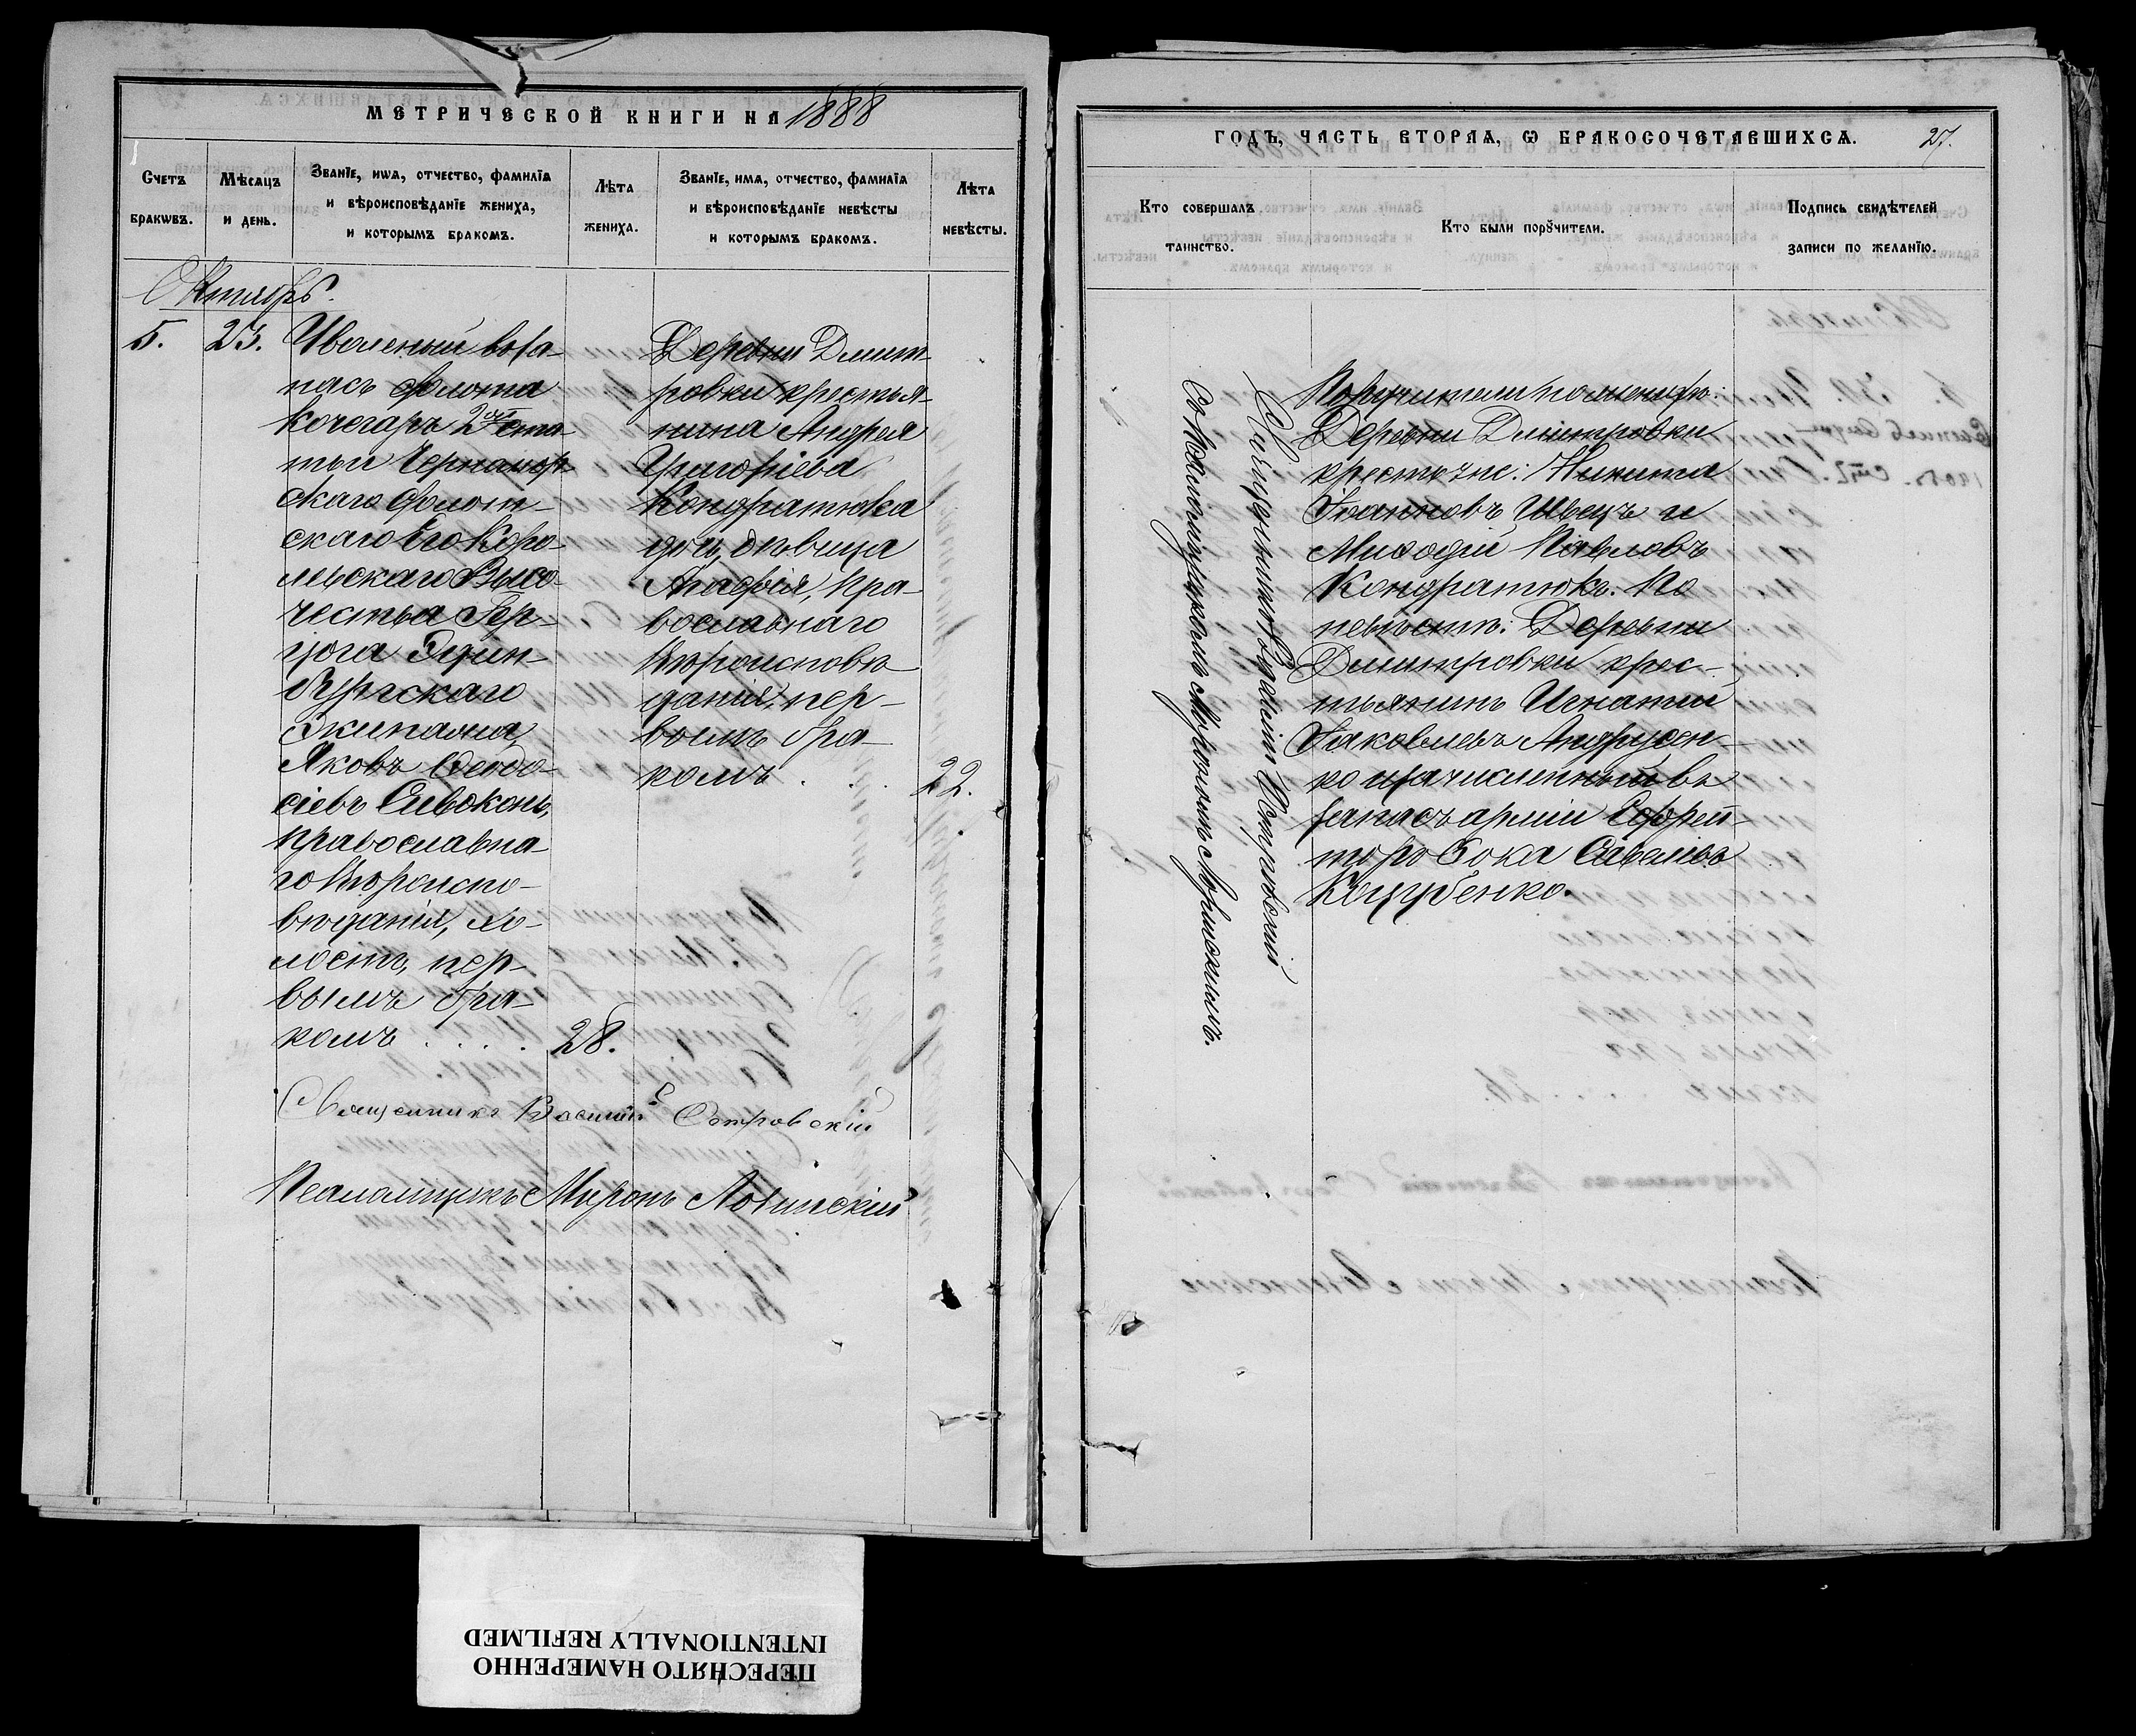 МЕТРИЧЕСКОЙ КНИГИ НА 1888
Счетъ браковъ.
Мѣсяцъ и день.
Званїе, имя, отчество, фамилїя
и вѣроисповѣданїе жениха,
и которымъ бракомъ.
Лѣта
жениха.
Званїе, имя, отчество, фамилїя
и вѣроисповѣданїе невѣсты
и которымъ бракомъ.
Лѣта
невѣсты.
Октябрь.
5.
23.
Уволеный въ за-
пасъ флота
кочегаръ 2ой ста-
тьи Черномор-
скаго флот-
скаго Его Коро-
левскаго Высо-
чества Гер-
цога Эдин-
бургскаго
Экипажа,
Яковъ Ѳеодо-
сіевъ Сивоконь,
православна-
го вѣроиспо-
вѣданія, хо-
лостъ, пер-
вымъ бра-
комъ . . . .
28.
Деревни Димит-
ровки крестья-
нина Андрея
Григоріева
Кондратюка
дочь, дѣвица
Агафія, пра-
вославнаго
вѣроисповѣ-
данія, пер-
вымъ бра-
комъ . . .
22.
Священникъ Василій Островскій
Псаломщикъ Миронъ Лотинскій
ГОДЪ, ЧАСТЬ ВТОРАЯ, Ѡ БРАКОСОЧЕТАВШИХСЯ.
27.
Кто совершалъ
таинство.
Кто были порꙋчители.
Подпись свидѣтелей
записи по желанїю.
Священникъ Василій Островскій
со псаломщикомъ Мирономъ
Поручители по женихѣ:
Деревни Димитровки
крестьяне: Никита
Іоанновъ Швецъ и
Миѳодій Павловъ
Кондратюкъ. По
невѣстѣ: Деревни
Димитровки крес-
тьянинъ Игнатій
Іаковлевъ Андрусен-
ко и зачисленный въ
запасъ арміи Ефрей-
торъ Савеліевъ
Коцубенко.
ПЕРЕСНЯТО НАМЕРЕННО
INTENTIONALLY REFILMED